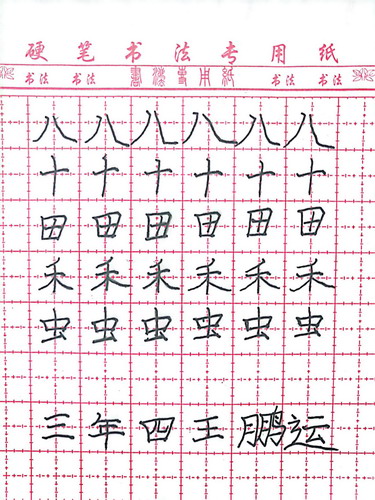 硬笔书法专用纸
书法 书法 書法專用紙 书法 书法
八八八八八八
十十十十十十
田田田田田田
禾禾禾禾禾禾
虫虫虫虫虫虫
三年四王鹏运